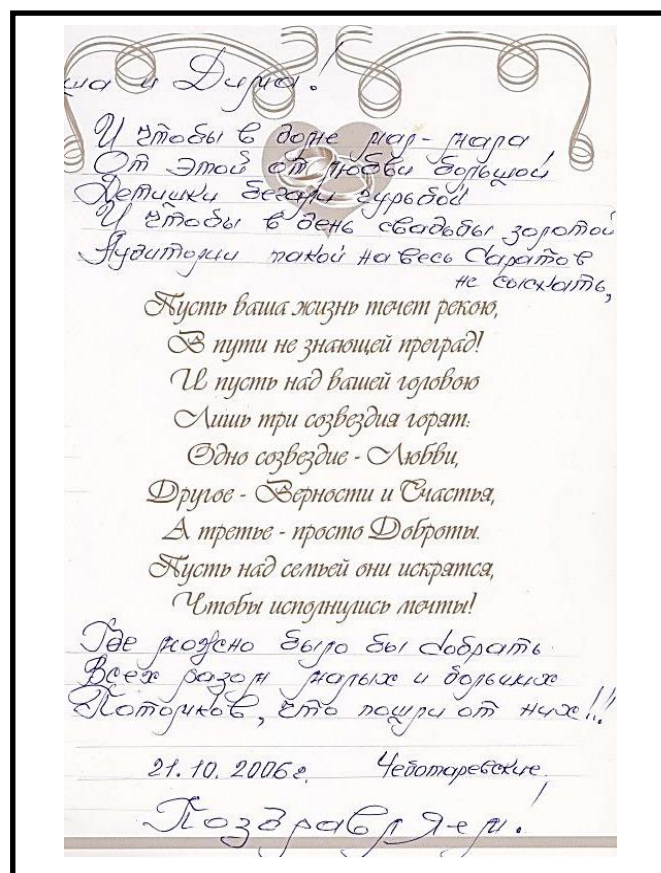 и Дима!
И чтобы в доме мал-мала
От этой от любви большой
Детишки бегали гурьбой
И чтобы в день свадьбы золотой
Аудитории такой на весь Саратов
не сыскать,
Пусть ваша жизнь течет рекою,
В пути не знающей преград!
И пусть над вашей головою
Лишь три созвездия горят:
Одно созвездие - Любви,
Другое - Верности и Счастья,
А третье - просто Доброты.
Пусть над семьей они искрятся,
Чтобы исполнились мечты!
Где можно было бы собрать
Всех разом малых и больших
Потомков, что пошли от них!!!
21.10.2006г. Чеботаревские.
Поздравляем!